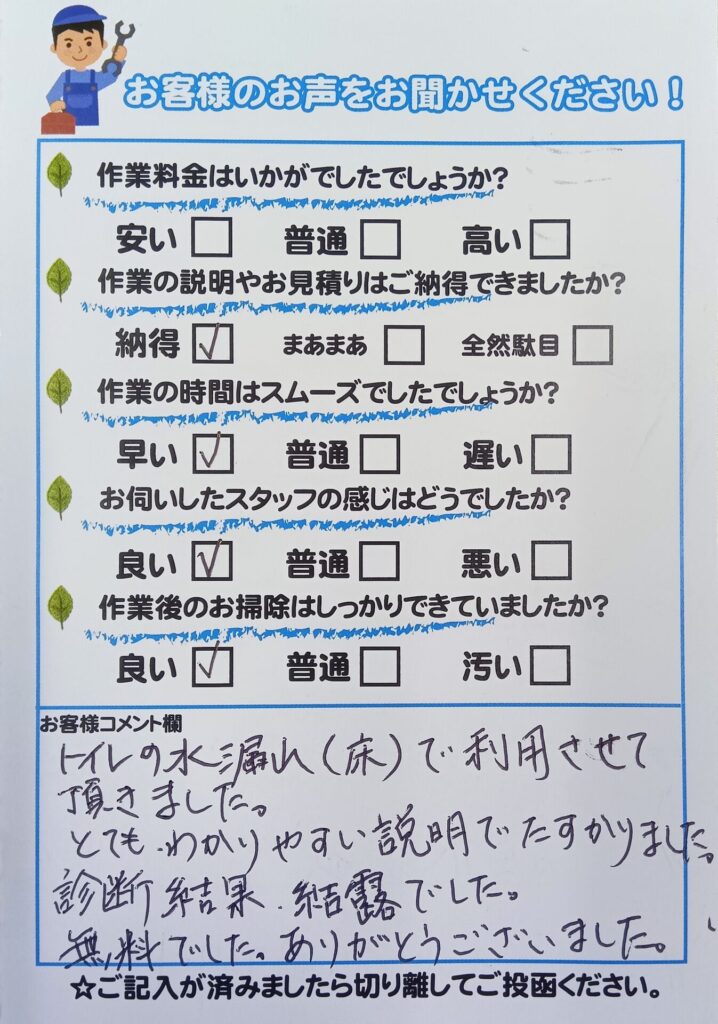 お客様のお声をお聞かせください！
作業料金はいかがでしたでしょうか？
安い □ 普通 □ 高い □
作業の説明やお見積りはご納得できましたか？
納得 ☑ まあまあ □ 全然駄目 □
作業の時間はスムーズでしたでしょうか？
早い ☑ 普通 □ 遅い □
お伺いしたスタッフの感じはどうでしたか？
良い ☑ 普通 □ 悪い □
作業後のお掃除はしっかりできていましたか？
良い ☑ 普通 □ 汚い □
お客様コメント欄
トイレの水漏れ(床)で利用させて
頂きました。
とても わかりやすい説明でたすかりました。
診断結果、結露でした。
無料でした。ありがとうございました。
☆ご記入が済みましたら切り離してご投函ください。